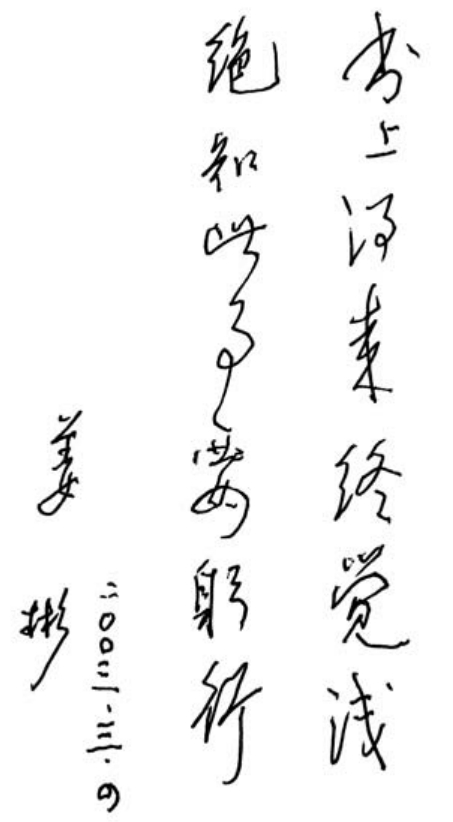 书上得来终觉浅
绝知此事要躬行
姜彬
二〇〇三·三·四